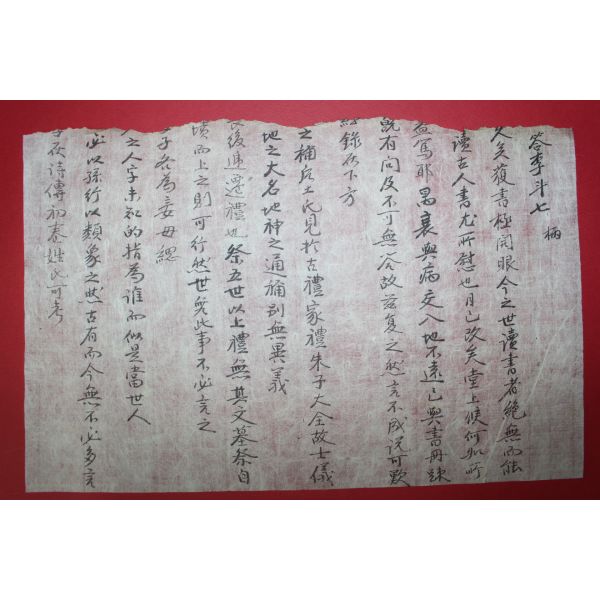 答李斗七 柄
久矣獲書極開眼今之世讀書者絶無而能
讀古人書尤所慰也月已改矣堂上候何如所
益篤耶昺衰與病交入地不遠已與書冊踈
既有問及不可無答故玆復之然言不成說可歎
錄在下方
之稱后土氏見於古禮家禮朱子大全故士儀
地之大名地神之通稱別無異義
後遞遷禮也祭五世以上禮無其文墓祭自
墳而上之則可行然世無此事不必言之
子衆爲妾母緦
之人字未知的指爲誰而似是當世人
必以孫行以類象之然古有而今無不必多言
灰詩傳初卷姓氏可考